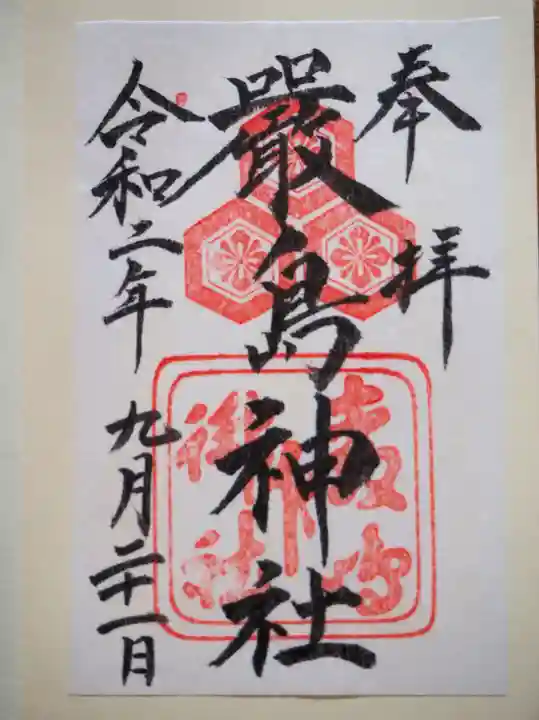 奉拝
嚴島神社
令和二年九月二十一日